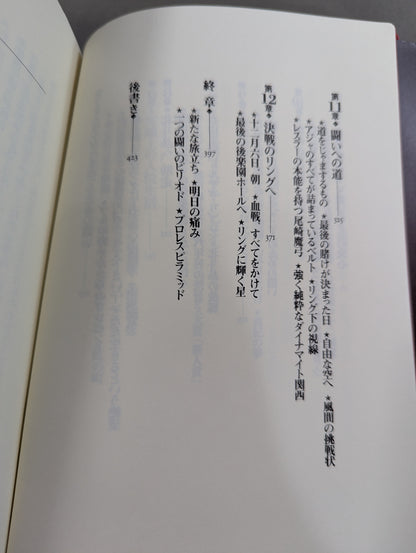 第11章◆闘いへの道 325
★道をじゃまするもの ★最後の賭けが決まった日 ★自由な空へ ★風間の挑戦状
★アジャのすべてが詰まっているベルト ★リング下の視線
★レスラーの本能を持つ尾崎魔弓 ★強く純粋なダイナマイト関西
第12章◆決戦のリングへ 371
★十二月六日、朝 ★血戦、すべてをかけて
★最後の後楽園ホールへ ★リングに輝く星
終章◆ 397
★新たな旅立ち ★明日の痛み
★一つの闘いのピリオド ★プロレスピラミッド
後書き◆ 423